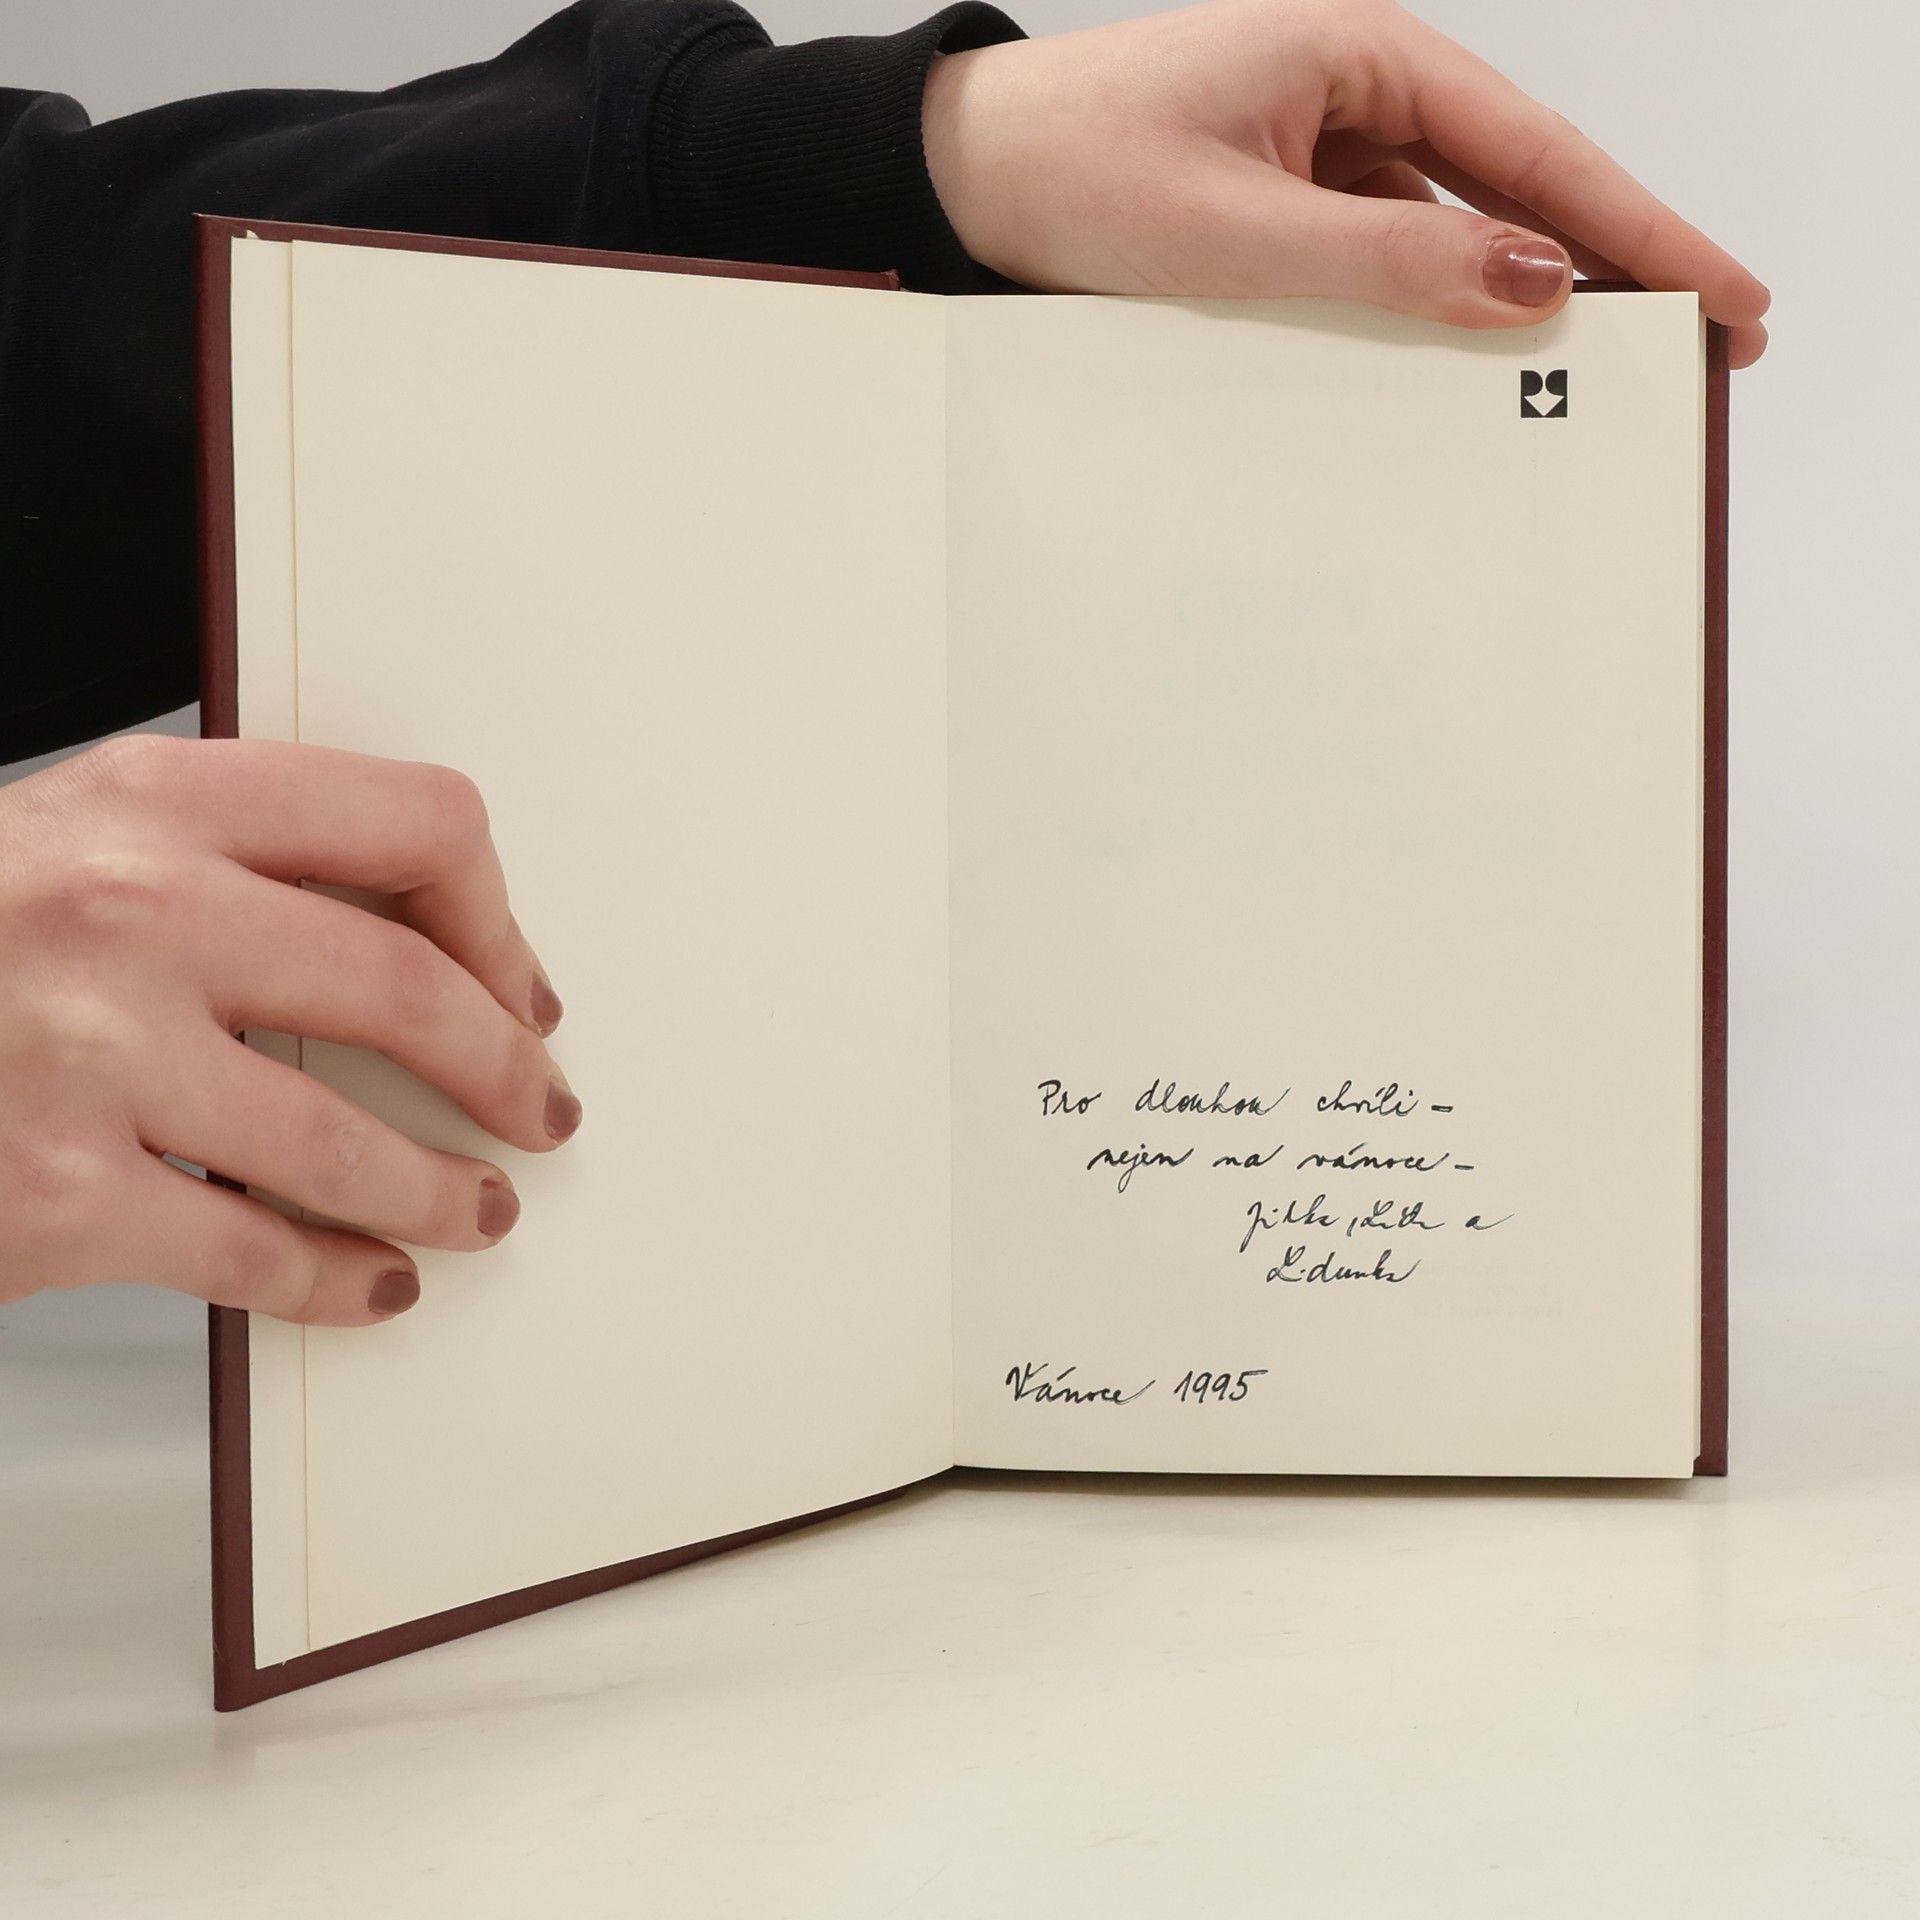 Pro dlouhou chvíli –
nejen na vánoce –
Jitka, a
Lidunka
Vánoce 1995